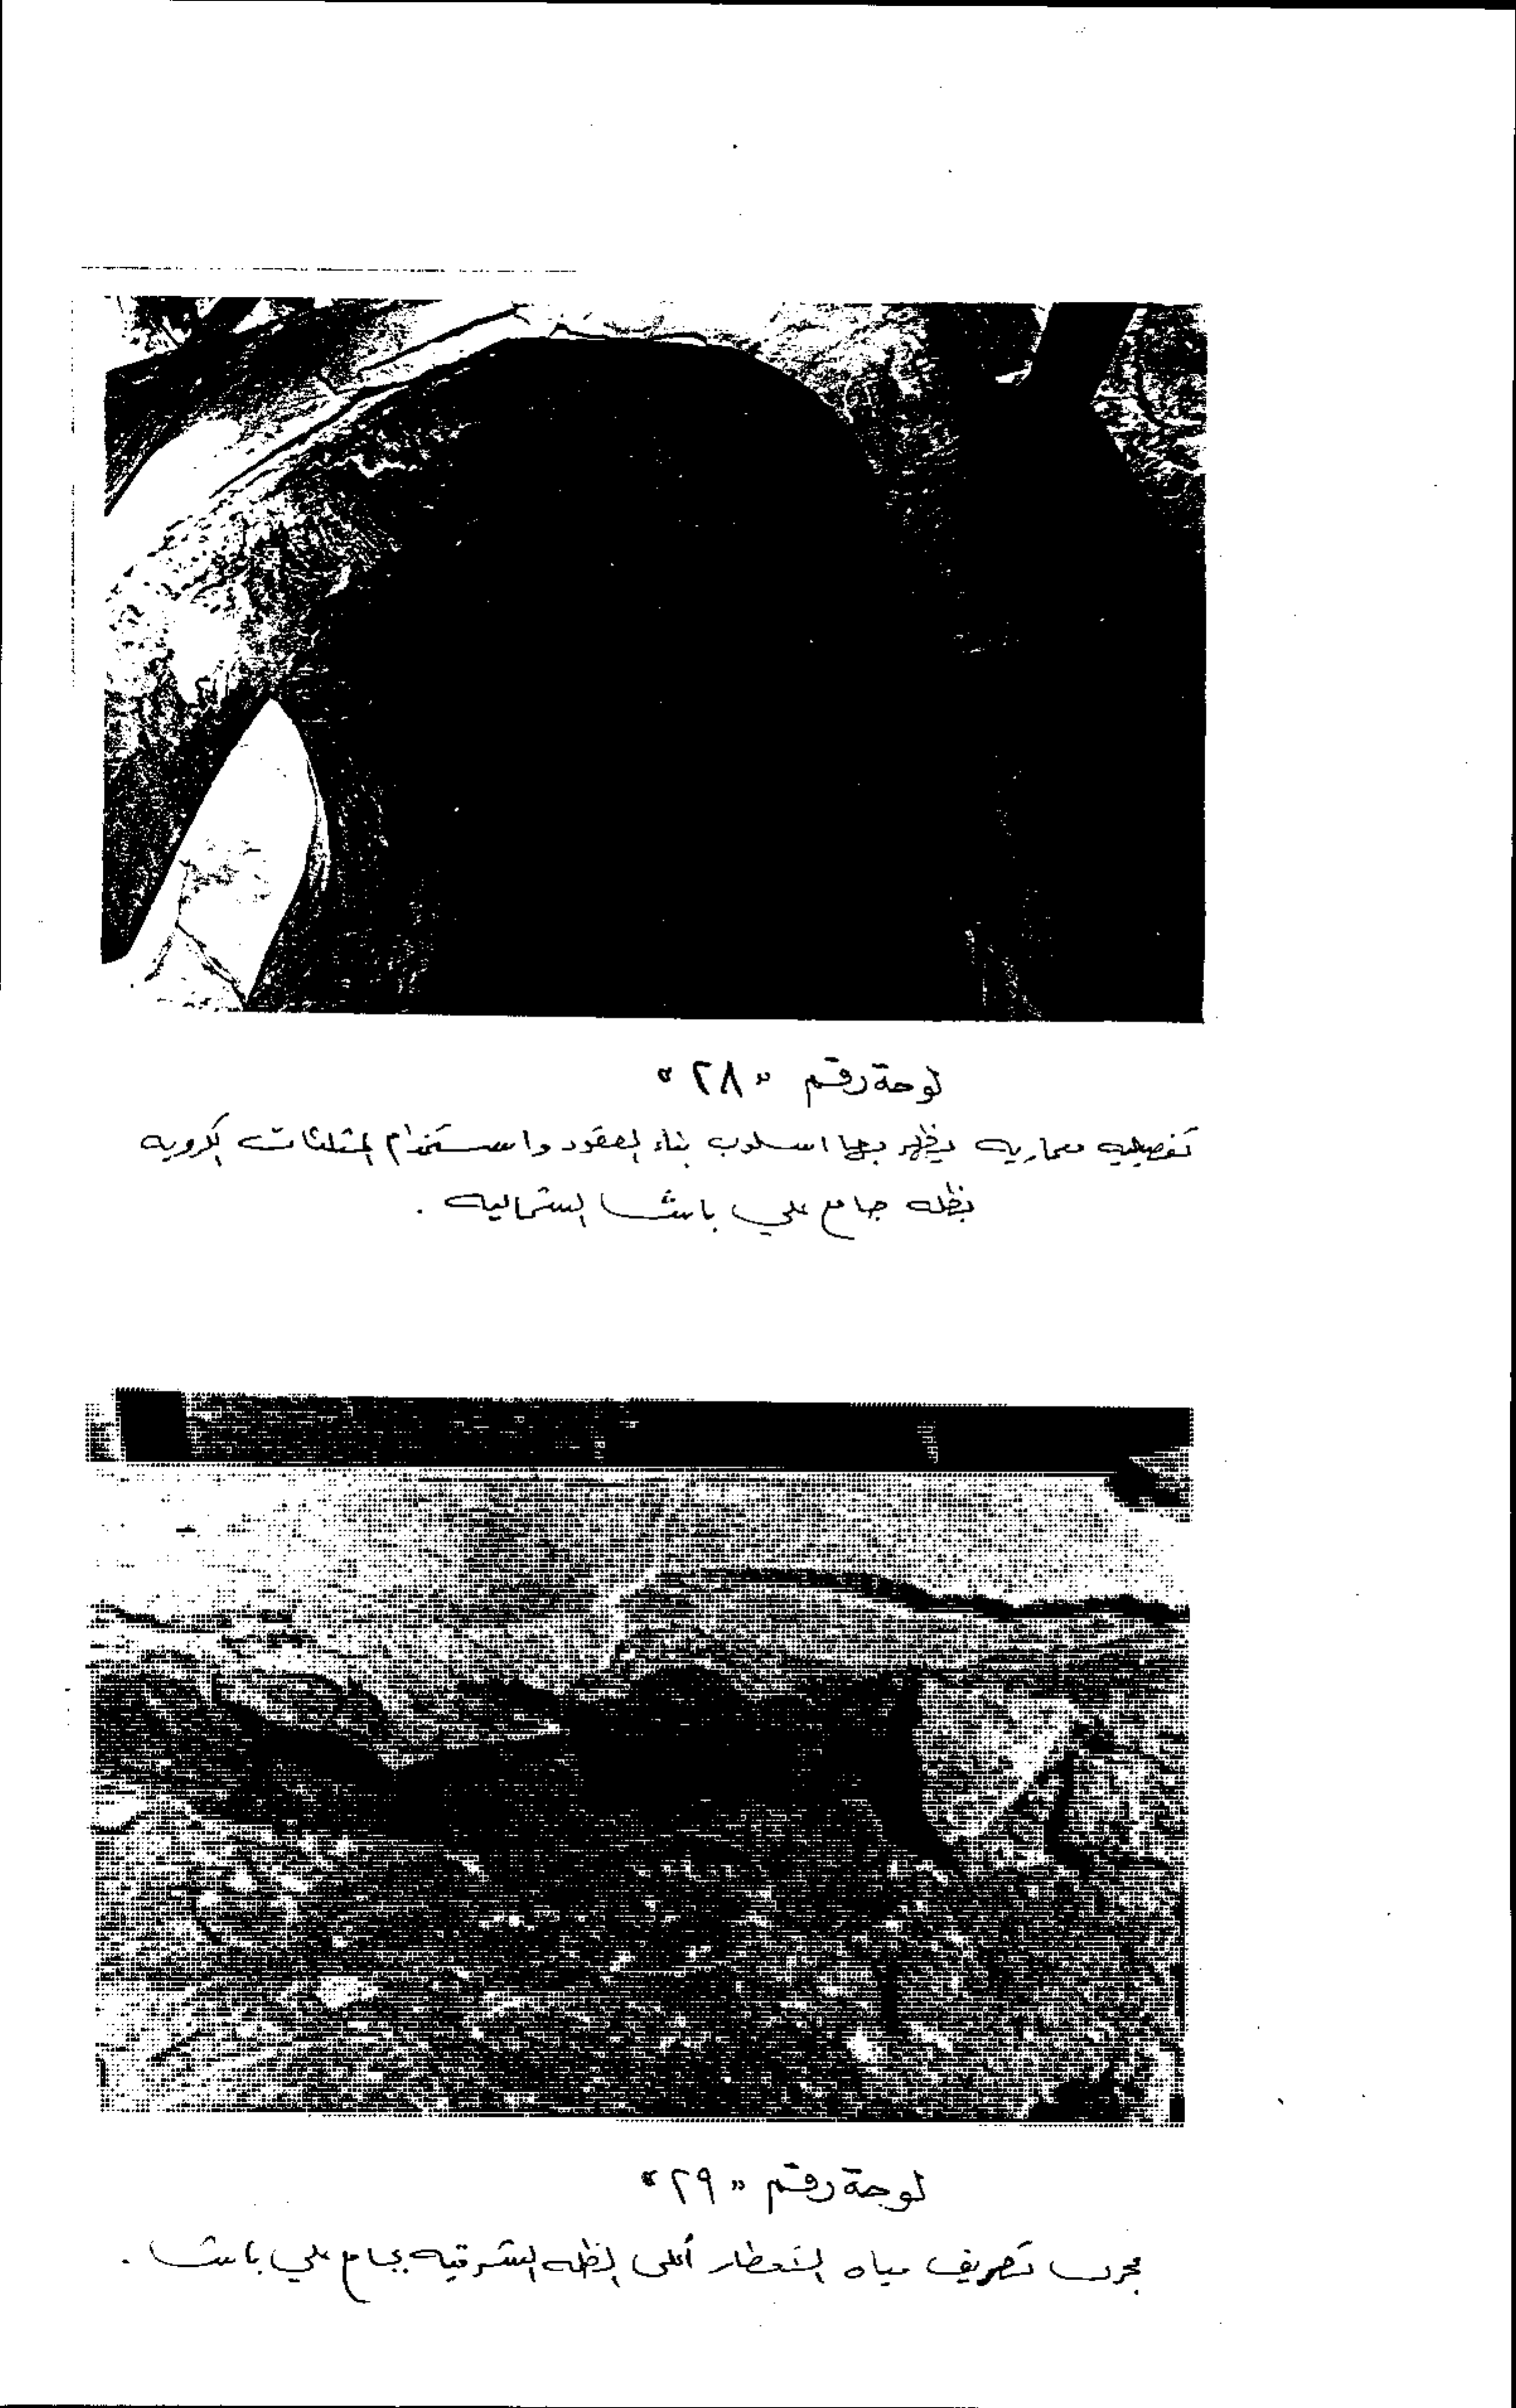 لوحة رقم «٢٨»
تفصيليه معماريه يظهر بها اسلوب بناء العقود واستخدام المثلثات الكرويه
بظله جامع علي باشا الشماليه .
لوحة رقم «٢٩»
مجرى تصريف مياه الأمطار أعلى الظله الشرقيه بجامع علي باشا .